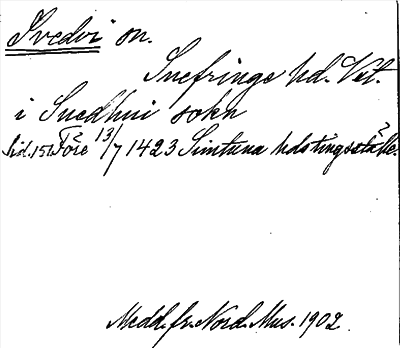 Svedvi sn.
Snefringe hd. Vst.
i Suedhui sokn
Sid. 151. Före 13/7 1423 Simtuna hdstingsställe.
Medd. fr. Nord. Mus. 1902